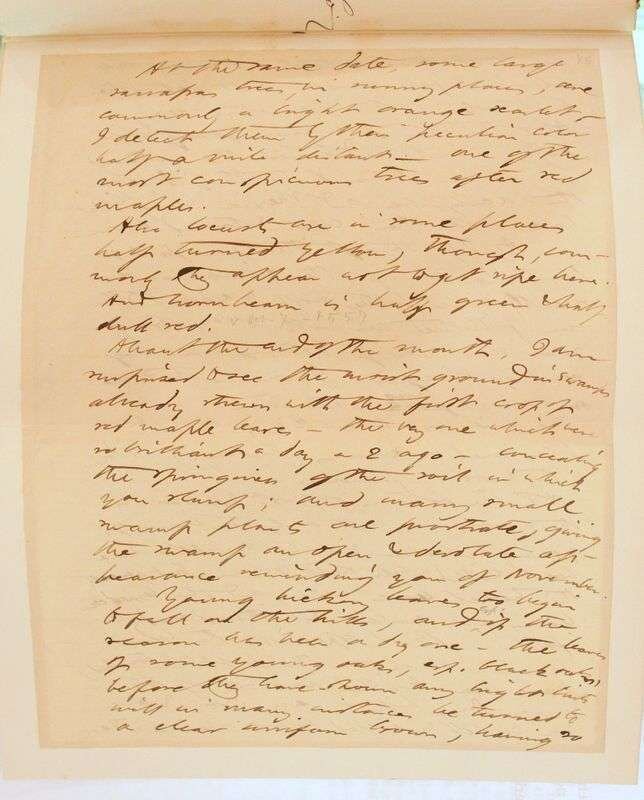 At the same date, some large
sassafras trees, in sunny places, are
commonly a bright orange scarlet—
I detect them by their peculiar color
half a mile distant— one of the
most conspicuous trees after red
maples.
Also locusts are in some places
half turned yellow, though, com-
monly they appear not to get ripe here.
And hornbeam is half green & half
dull red.
About the end of the month, I am
surprised to see the moist ground in swamps
already strewn with the first crop of
red maple leaves — the very one which was
so brilliant a day or 2 ago — concealing
the sponginess of the soil in which
you slump; and many small
swamp plants are prostrate, giving
the swamp an open & desolate ap-
pearance reminding you of November.
Young hickory leaves begin
to fall on the hills, and if the
season has been a dry one — the leaves
of some young oaks, esp. black oaks,
before they have shown any bright tints
will in many instances be turned to
a clear uniform brown, having so